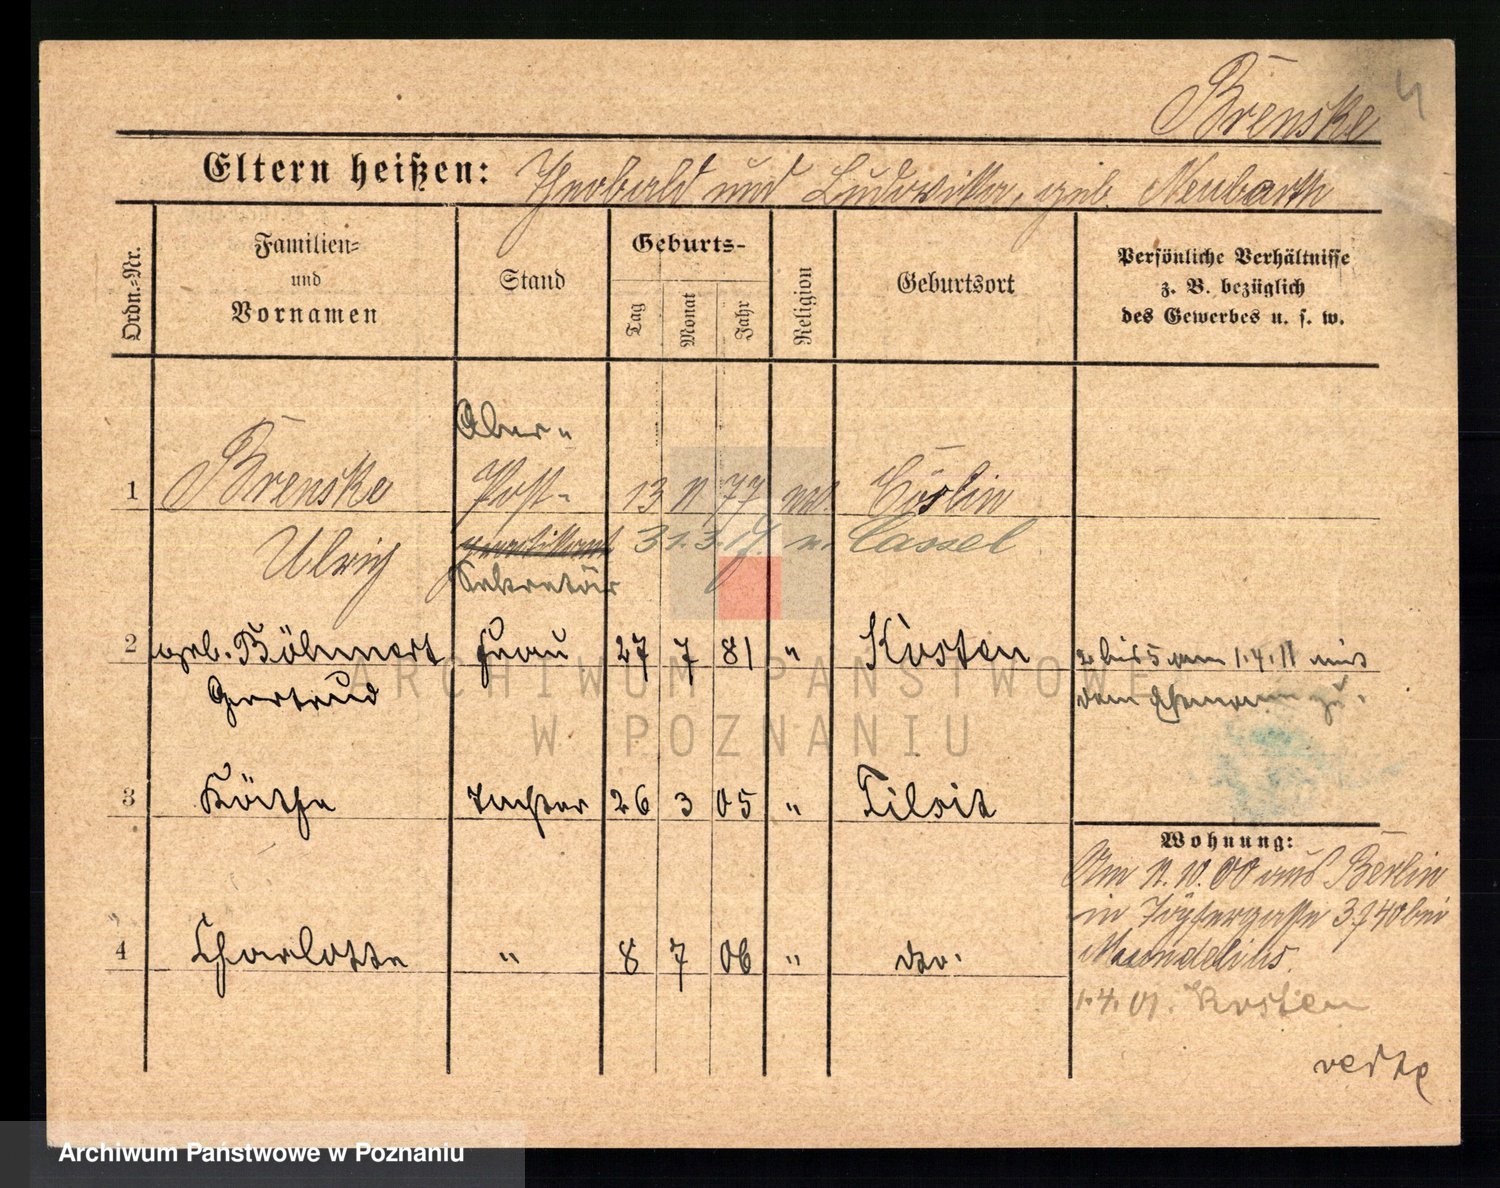 Brenske
4
Eltern heißen: Theobald und Ludowika, geb. Neubarth
Ordn.-Nr.
Familien-
und
Vornamen
Stand
Geburts-
Tag
Monat
Jahr
Religion
Geburtsort
Persönliche Verhältnisse
z. B. bezüglich
des Gewerbes u. s. w.
Ober-
1 Brenske Post- 13 11 77 Cöslin
Ulrich praktikant 31.3.17. n. Cassel
Sekretär
2 geb. Böhmert Frau 27 7 81 " Kosten 2 bis 5 vom 1.4.11 mit
Gertrud dem Ehemann zu.
3 Käthe Tochter 26 3 05 " Tilsit
Wohnung:
Am 11.10.00 aus Berlin
in 3 I 40 bei
Mundelius.
4 Charlotte " 8 7 06 " do.
1.4.01. Kosten
verte
ARCHIWUM PAŃSTWOWE
W POZNANIU
Archiwum Państwowe w Poznaniu